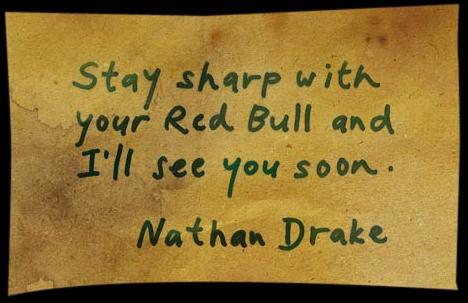 Stay sharp with
your Red Bull and
I'll see you soon.
Nathan Drake